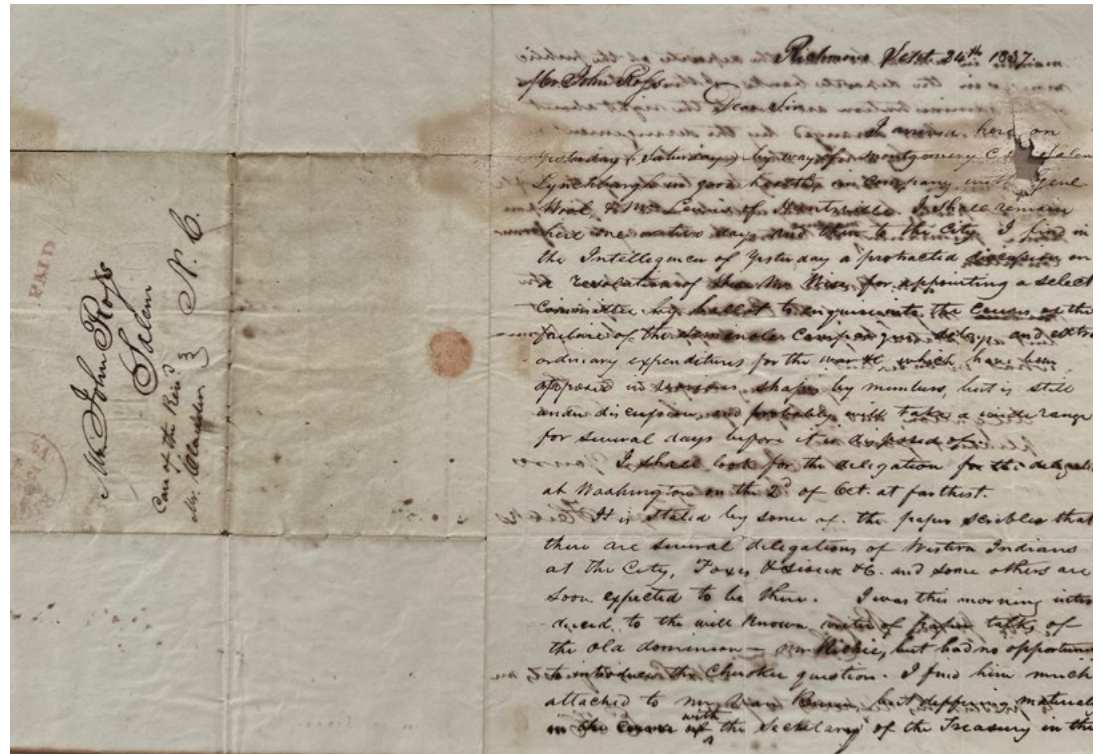 PAID
Mr. John Ross
Salem
N. C.
Care of the Revd
Mr. Clauder
Richmond Sept. 24th 1837
Mr. John Ross
Dear Sir
I arrived here on
yesterday (Saturday) by way of Montgomery C. H. Salem
Lynchburgh in good health, in company with Genl
Wool, & Mr. Lewis of Huntsville. I shall remain
here one or two days and then to the City. I find in
the Intelligencer of yesterday a protracted discussion on
the resolution of Mr. Wise, for appointing a select
Committee by ballot to enquire into the Causes of the
failure of the Seminole Campaigns delays and extra
ordinary expenditures for the war &c. which have been
opposed in various shapes by members, but is still
under discussion, and probably will take a wide range
for several days before it is disposed of.
I shall look for the delegation
at Washington on the 2d of Oct. at farthest.
It is stated by some of the paper scribles that
there are several delegations of Western Indians
at the City, Foxes & Sioux &C. and some others are
soon expected to be there. I was this morning intro
duced to the well known writer of paper talks of
the old dominion – Mr. Richie, but had no opportun
to introduce the Cherokee question. I find him much
attached to Mr. Van Buren, but differing material
with the Secretary of the Treasury in the